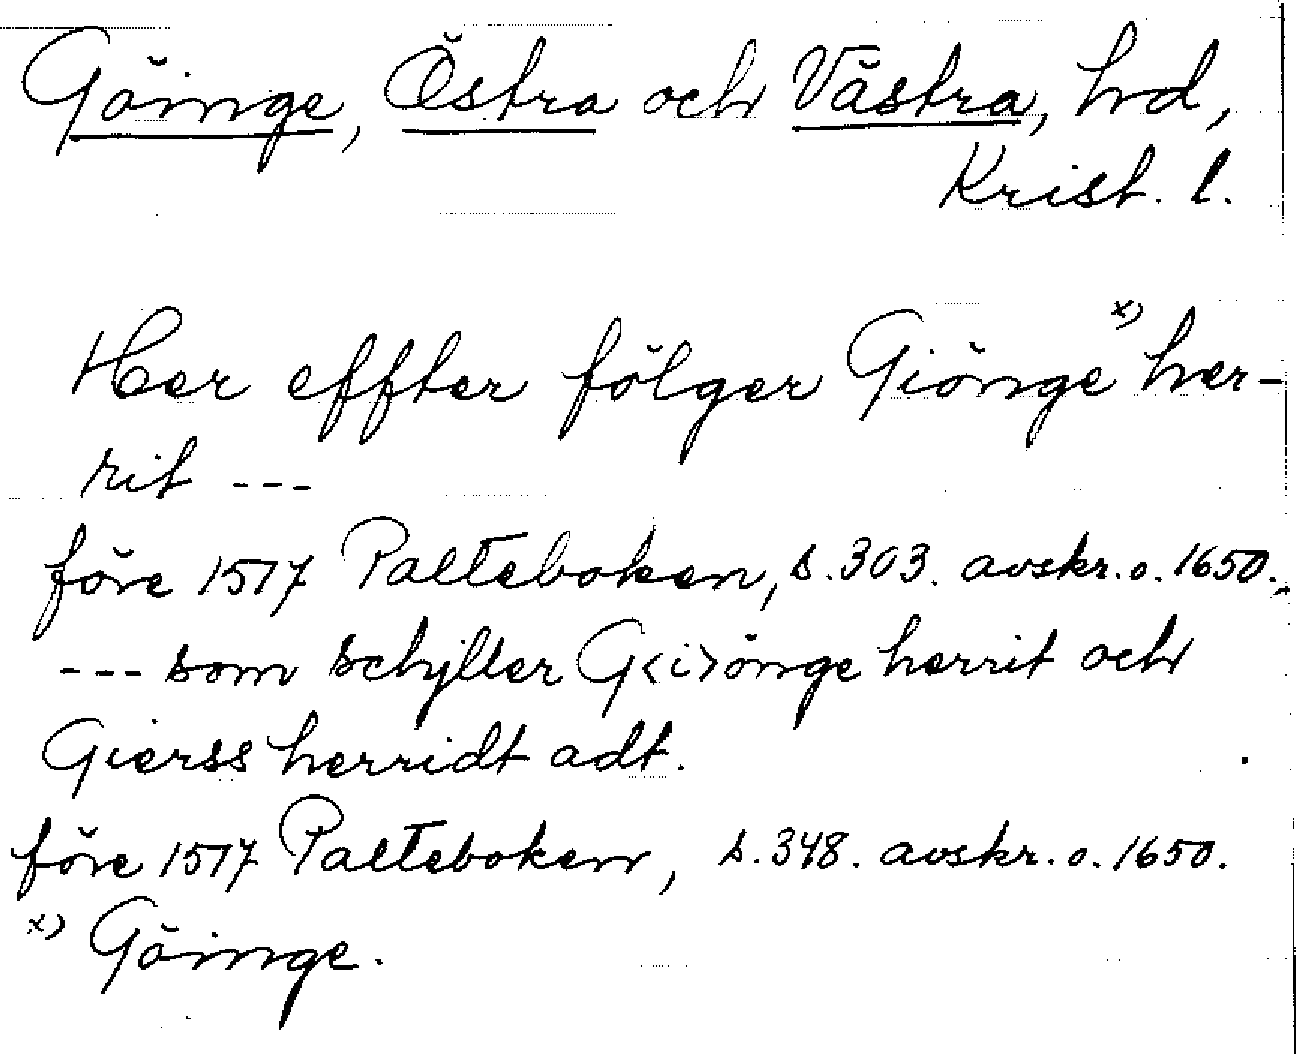 Göinge, Östra och Västra, hd,
Krist. l.
Her effter fölger Giönge x) her-
rit ---
före 1517 Palteboken, s. 303. avskr. o. 1650.
--- som schjller G<i>önge herrit och
Gierss herridt adt.
före 1517 Palteboken, s. 348. avskr. o. 1650.
x) Göinge.